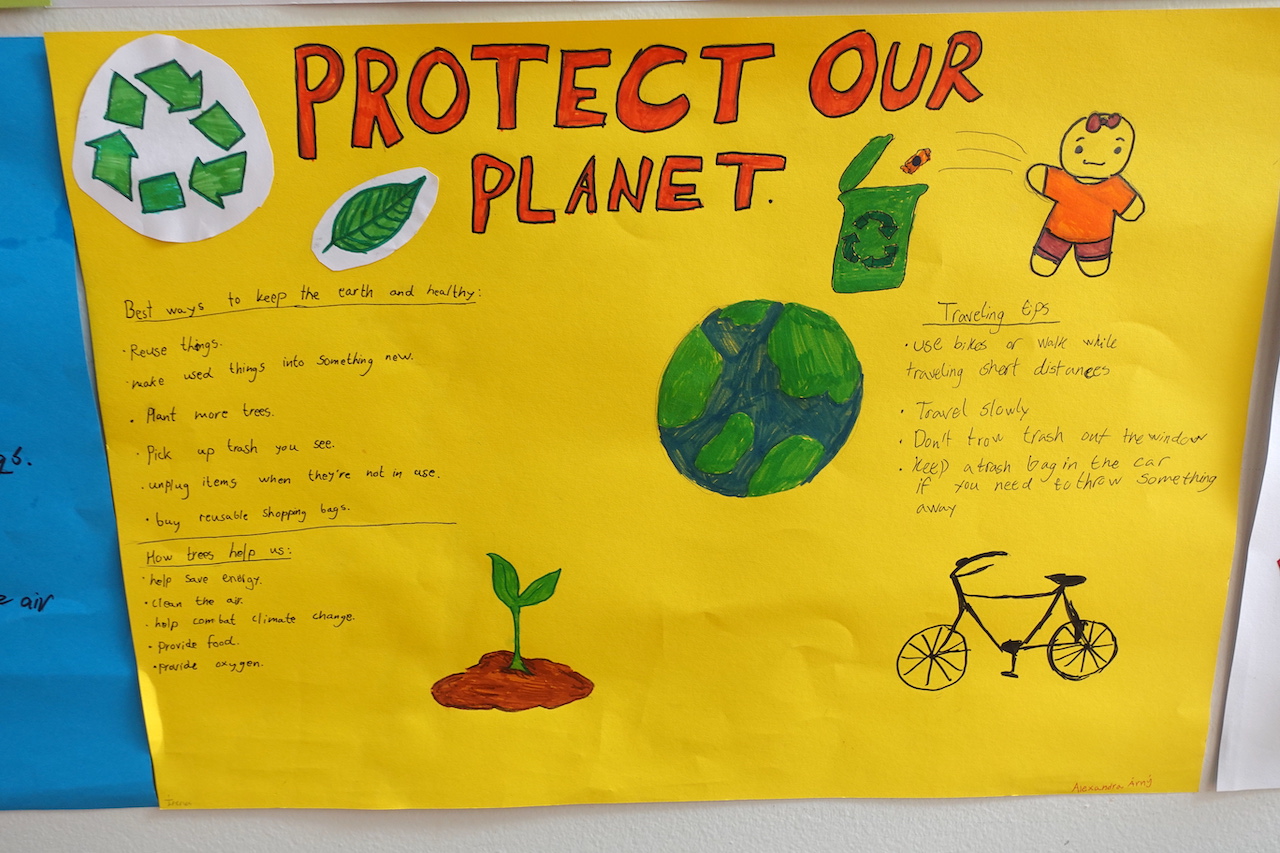 PROTECT OUR
PLANET.
Best ways to keep the earth and healthy:
· Reuse things.
· make used things into something new.
· Plant more trees.
· Pick up trash you see.
· unplug items when they're not in use.
· buy reusable shopping bags.
How trees help us:
· help save energy.
· clean the air.
· help combat climate change.
· provide food.
· provide oxygen.
Traveling tips
· use bikes or walk while
traveling short distances
· Travel slowly
· Don't trow trash out the window
· Keep a trash bag in the car
if you need to throw something
away
Alexandra Arný
air